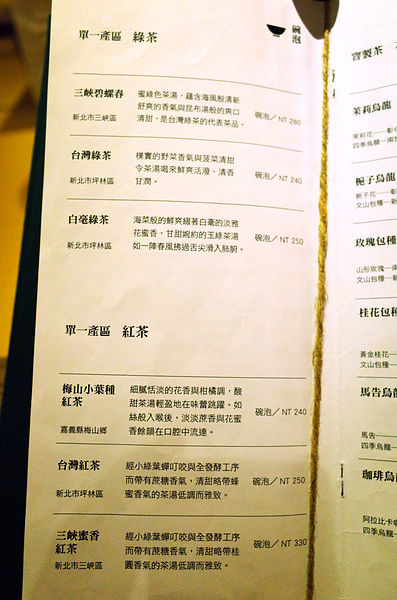 單一產區 綠茶
碗泡
三峽碧螺春
新北市三峽區
蜜綠色茶湯，蘊含海風般清新
舒爽的香氣與昆布湯般的爽口
清甜，是台灣綠茶的代表茶品。
碗泡／NT 280
台灣綠茶
新北市坪林區
樸實的野菜香氣與菠菜清甜
令茶湯喝來鮮爽活潑、清香
甘潤。
碗泡／NT 240
白毫綠茶
新北市坪林區
海菜般的鮮爽綴著白毫的淡雅
花蜜香，甘甜婉約的玉綠茶湯
如一陣春風拂過舌尖滑入肺腑。
碗泡／NT 250
單一產區 紅茶
梅山小葉種
紅茶
嘉義縣梅山鄉
細膩恬淡的花香與柑橘調，酸
甜茶湯輕盈地在味蕾跳躍。如
絲般入喉後，淡淡蔗香與花蜜
香餘韻在口腔中流連。
碗泡／NT 240
台灣紅茶
新北市坪林區
經小綠葉蟬叮咬與全發酵工序
而帶有蔗糖香氣，清甜略帶蜂
蜜香氣的茶湯低調而雅致。
碗泡／NT 250
三峽蜜香
紅茶
新北市三峽區
經小綠葉蟬叮咬與全發酵工序
而帶有蔗糖香氣，清甜略帶桂
圓香氣的茶湯低調而雅致。
碗泡／NT 330
窨製茶
茉莉烏龍
茉莉花—彰
四季烏龍—南投
梔子烏龍
梔子花—彰
文山包種—新
玫瑰包種
山形玫瑰—南
文山包種—新
桂花包種
黃金桂花—
文山包種—
馬告烏龍
馬告—
四季烏龍—
珈琲烏龍
阿拉比卡
四季烏龍—